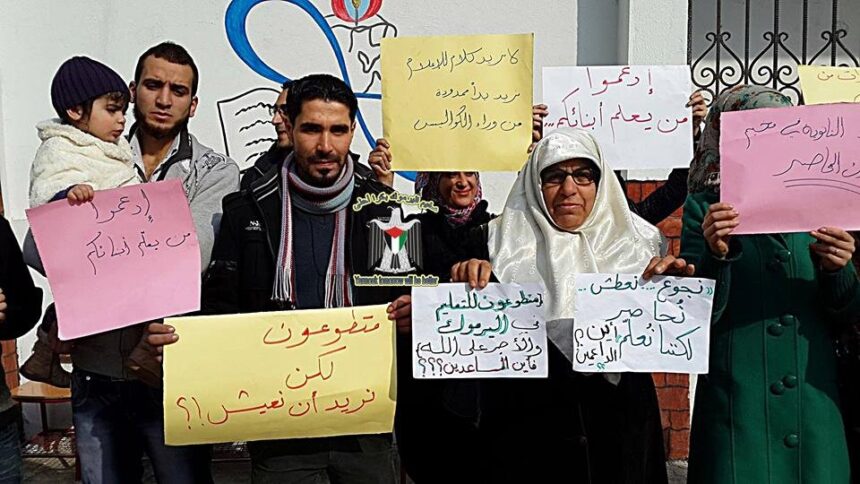 لا نريد كلام للإعلام
نريد يداً ممدودة
من وراء الكواليس
إدعموا
من يعلم أبنائكم...
ت من
الثانوية في مخيم
الحاصر
إدعموا
من يعلّم أبنائكم
اليرموك بكرا أحلى
Yarmouk tomorrow will be better
متطوعون
لكن
نريد أن نعيش !؟
متطوعون للتعليم
في اليرموك
والأجر على الله
فأين المساعدين؟؟؟
نجوع ... نعطش ...
نُحاصر
لكننا نُعلّم
أين الداعمين؟